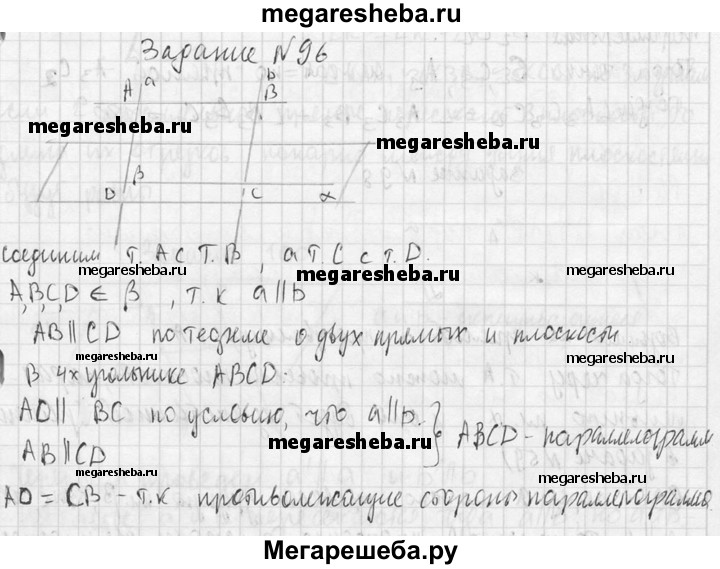 megaresheba.ru
Задание N96
A a b B
megaresheba.ru megaresheba.ru
D β C α
соединим т. A с т. B, а т. C с т. D.
megaresheba.ru megaresheba.ru
A, B, C, D ∈ β, т.к a||b
megaresheba.ru
AB||CD по теореме о двух прямых и плоскости.
megaresheba.ru megaresheba.ru
В 4х угольнике ABCD.
megaresheba.ru
AD|| BC по условию, что a||b. } ABCD - параллелограмм
megaresheba.ru
AB||CD
megaresheba.ru megaresheba.ru
AD = CB - т.к противолежащие стороны параллелограмма.
Мегарешеба.ру